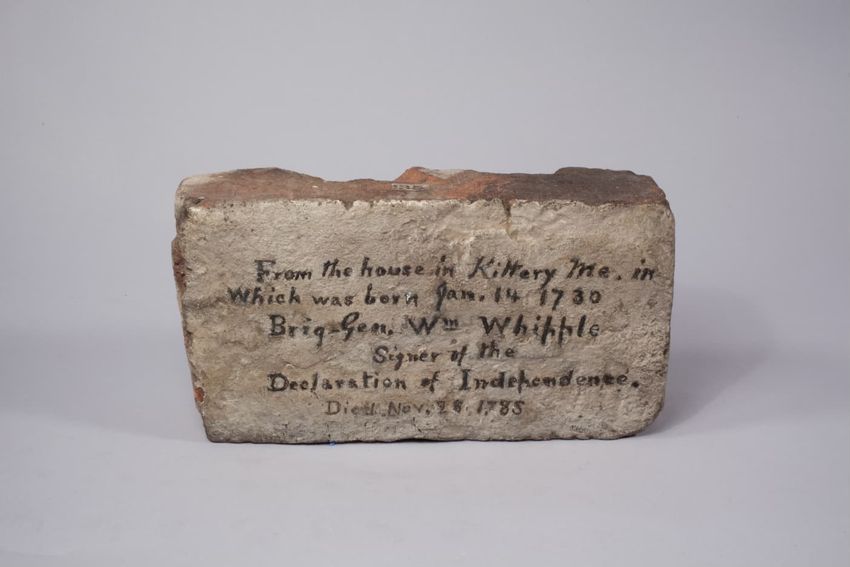 From the house in Kittery Me. in
Which was born Jan. 14 1730
Brig-Gen. Wm Whipple
Signer of the
Declaration of Independence.
Died Nov. 28. 1785